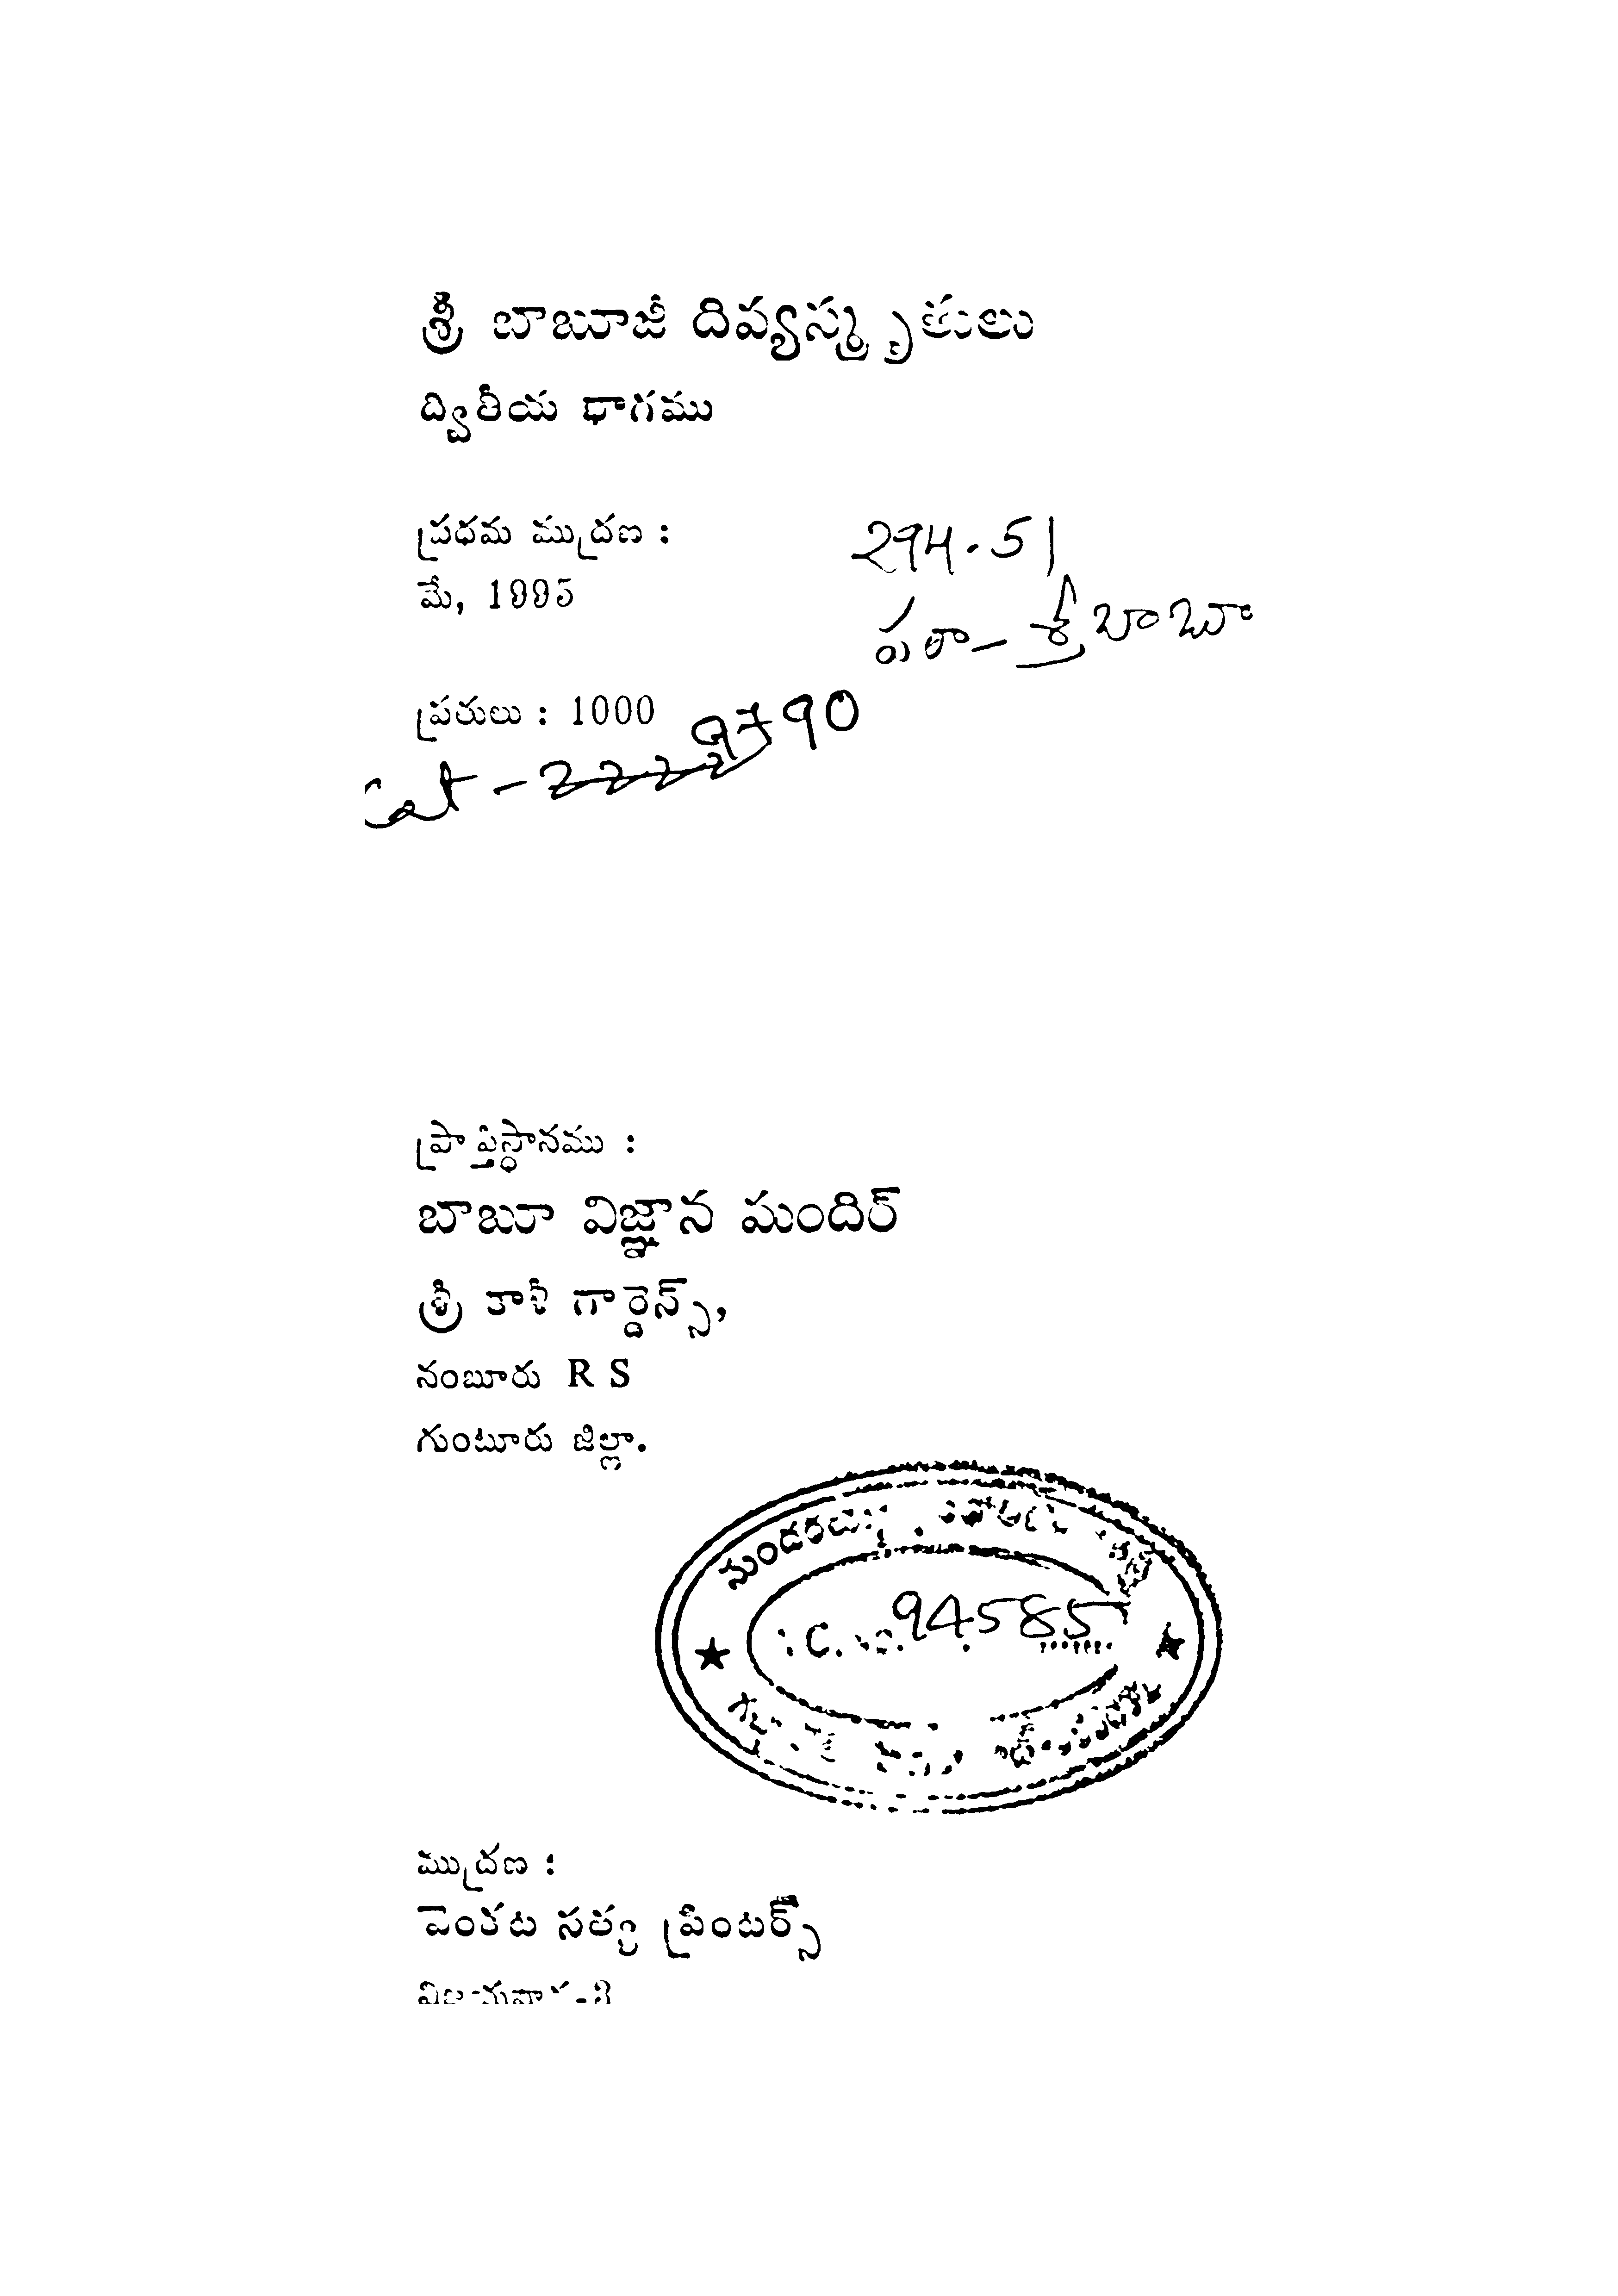 శ్రీ బాబూజీ దివ్యస్మృతులు
ద్వితీయ భాగము
ప్రథమ ముద్రణ :
మే, 1995
294.51
పరా - శ్రీబాబూ
ప్రతులు : 1000
Cat - 9790
ప్రాప్తిస్థానము :
బాబూ విజ్ఞాన మందిర్
శ్రీ కాళీ గార్డెన్స్,
నంబూరు R S
గుంటూరు జిల్లా.
94585
ముద్రణ :
వెంకట సత్య ప్రింటర్స్